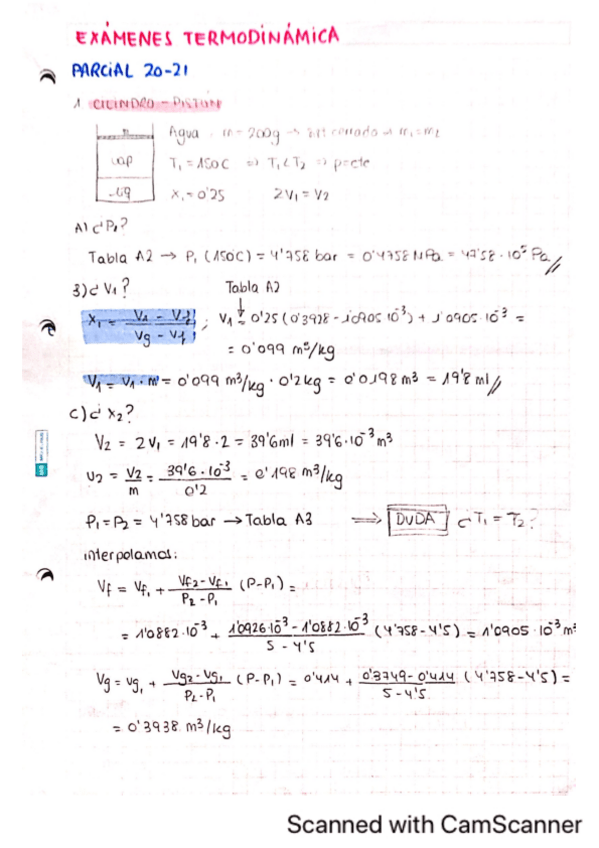 EXÁMENES TERMODINÁMICA
PARCIAL 20-21
1 CILINDRO - PISTÓN
Agua m = 200g → sist cerrado → m₁ = m₂
vap T₁ = 150C ⇒ T₁ < T₂ ⇒ p=cte
liq x₁ = 0'25 2V₁ = V₂
A) ¿P₁?
Tabla A2 → P₁ (150C) = 4'758 bar = 0'4758 MPa = 47'58·10⁵ Pa //
B) ¿V₁? Tabla A2
x₁ = V₁ - Vf / Vg - Vf ; V₁ = 0'25 (0'3928 - 1'0905·10⁻³) + 1'0905·10⁻³ =
= 0'099 m³/kg
V₁ = v₁ · m = 0'099 m³/kg · 0'2 kg = 0'0198 m³ = 19'8 ml //
C) ¿x₂?
V₂ = 2V₁ = 19'8 · 2 = 39'6 ml = 39'6·10⁻³ m³
υ₂ = V₂/m = 39'6·10⁻³/0'2 = 0'198 m³/kg
P₁ = P₂ = 4'758 bar → Tabla A3 ⟹ DUDA ¿T₁ = T₂?
interpolamos:
Vf = Vf₁ + Vf₂-Vf₁/P₂-P₁ (P-P₁) =
= 1'0882·10⁻³ + 1'0926·10⁻³ - 1'0882·10⁻³/5 - 4'5 (4'758 - 4'5) = 1'0905·10⁻³ m³
Vg = vg₁ + Vg₂-Vg₁/P₂-P₁ (P-P₁) = 0'414 + 0'3749-0'414/5-4'5 (4'758-4'5) =
= 0'3938 m³/kg
Scanned with CamScanner